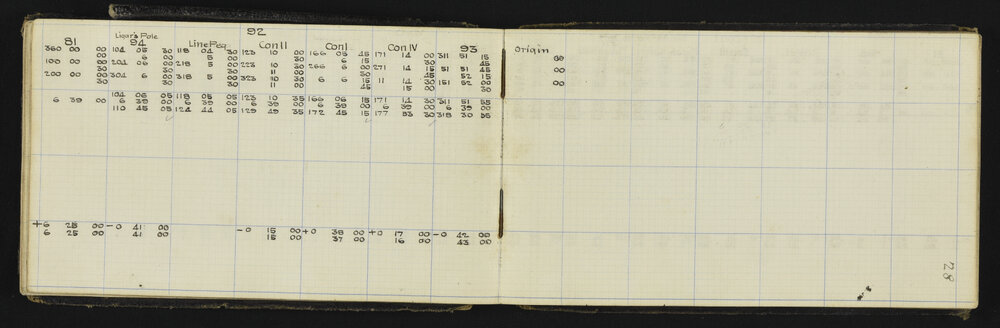 92
Ligar's Pole
81 94 Line Peg Con II Con I Con IV 93 Origin
360 00 00 104 05 30 118 04 30 123 10 00 166 05 45 171 14 00 311 51 15 00
00 6 00 5 00 30 6 15 30 45
100 00 00 204 06 00 218 5 00 223 10 30 266 6 00 271 14 15 51 51 45 00
30 30 30 11 00 30 45 52 15
200 00 00 304 6 00 318 5 00 323 10 30 6 6 15 11 14 30 151 52 00 00
30 30 30 11 00 45 15 00 30
104 06 05 118 05 05 123 10 35 166 06 15 171 14 30 311 51 55
6 39 00 6 39 00 6 39 00 6 39 00 6 39 00 6 39 00 6 39 00
110 45 05 124 44 05 129 49 35 172 45 15 177 53 30 318 30 55
+6 25 00 -0 41 00 -0 15 00 +0 38 00 +0 17 00 -0 42 00
6 25 00 41 00 15 00 37 00 16 00 43 00
28